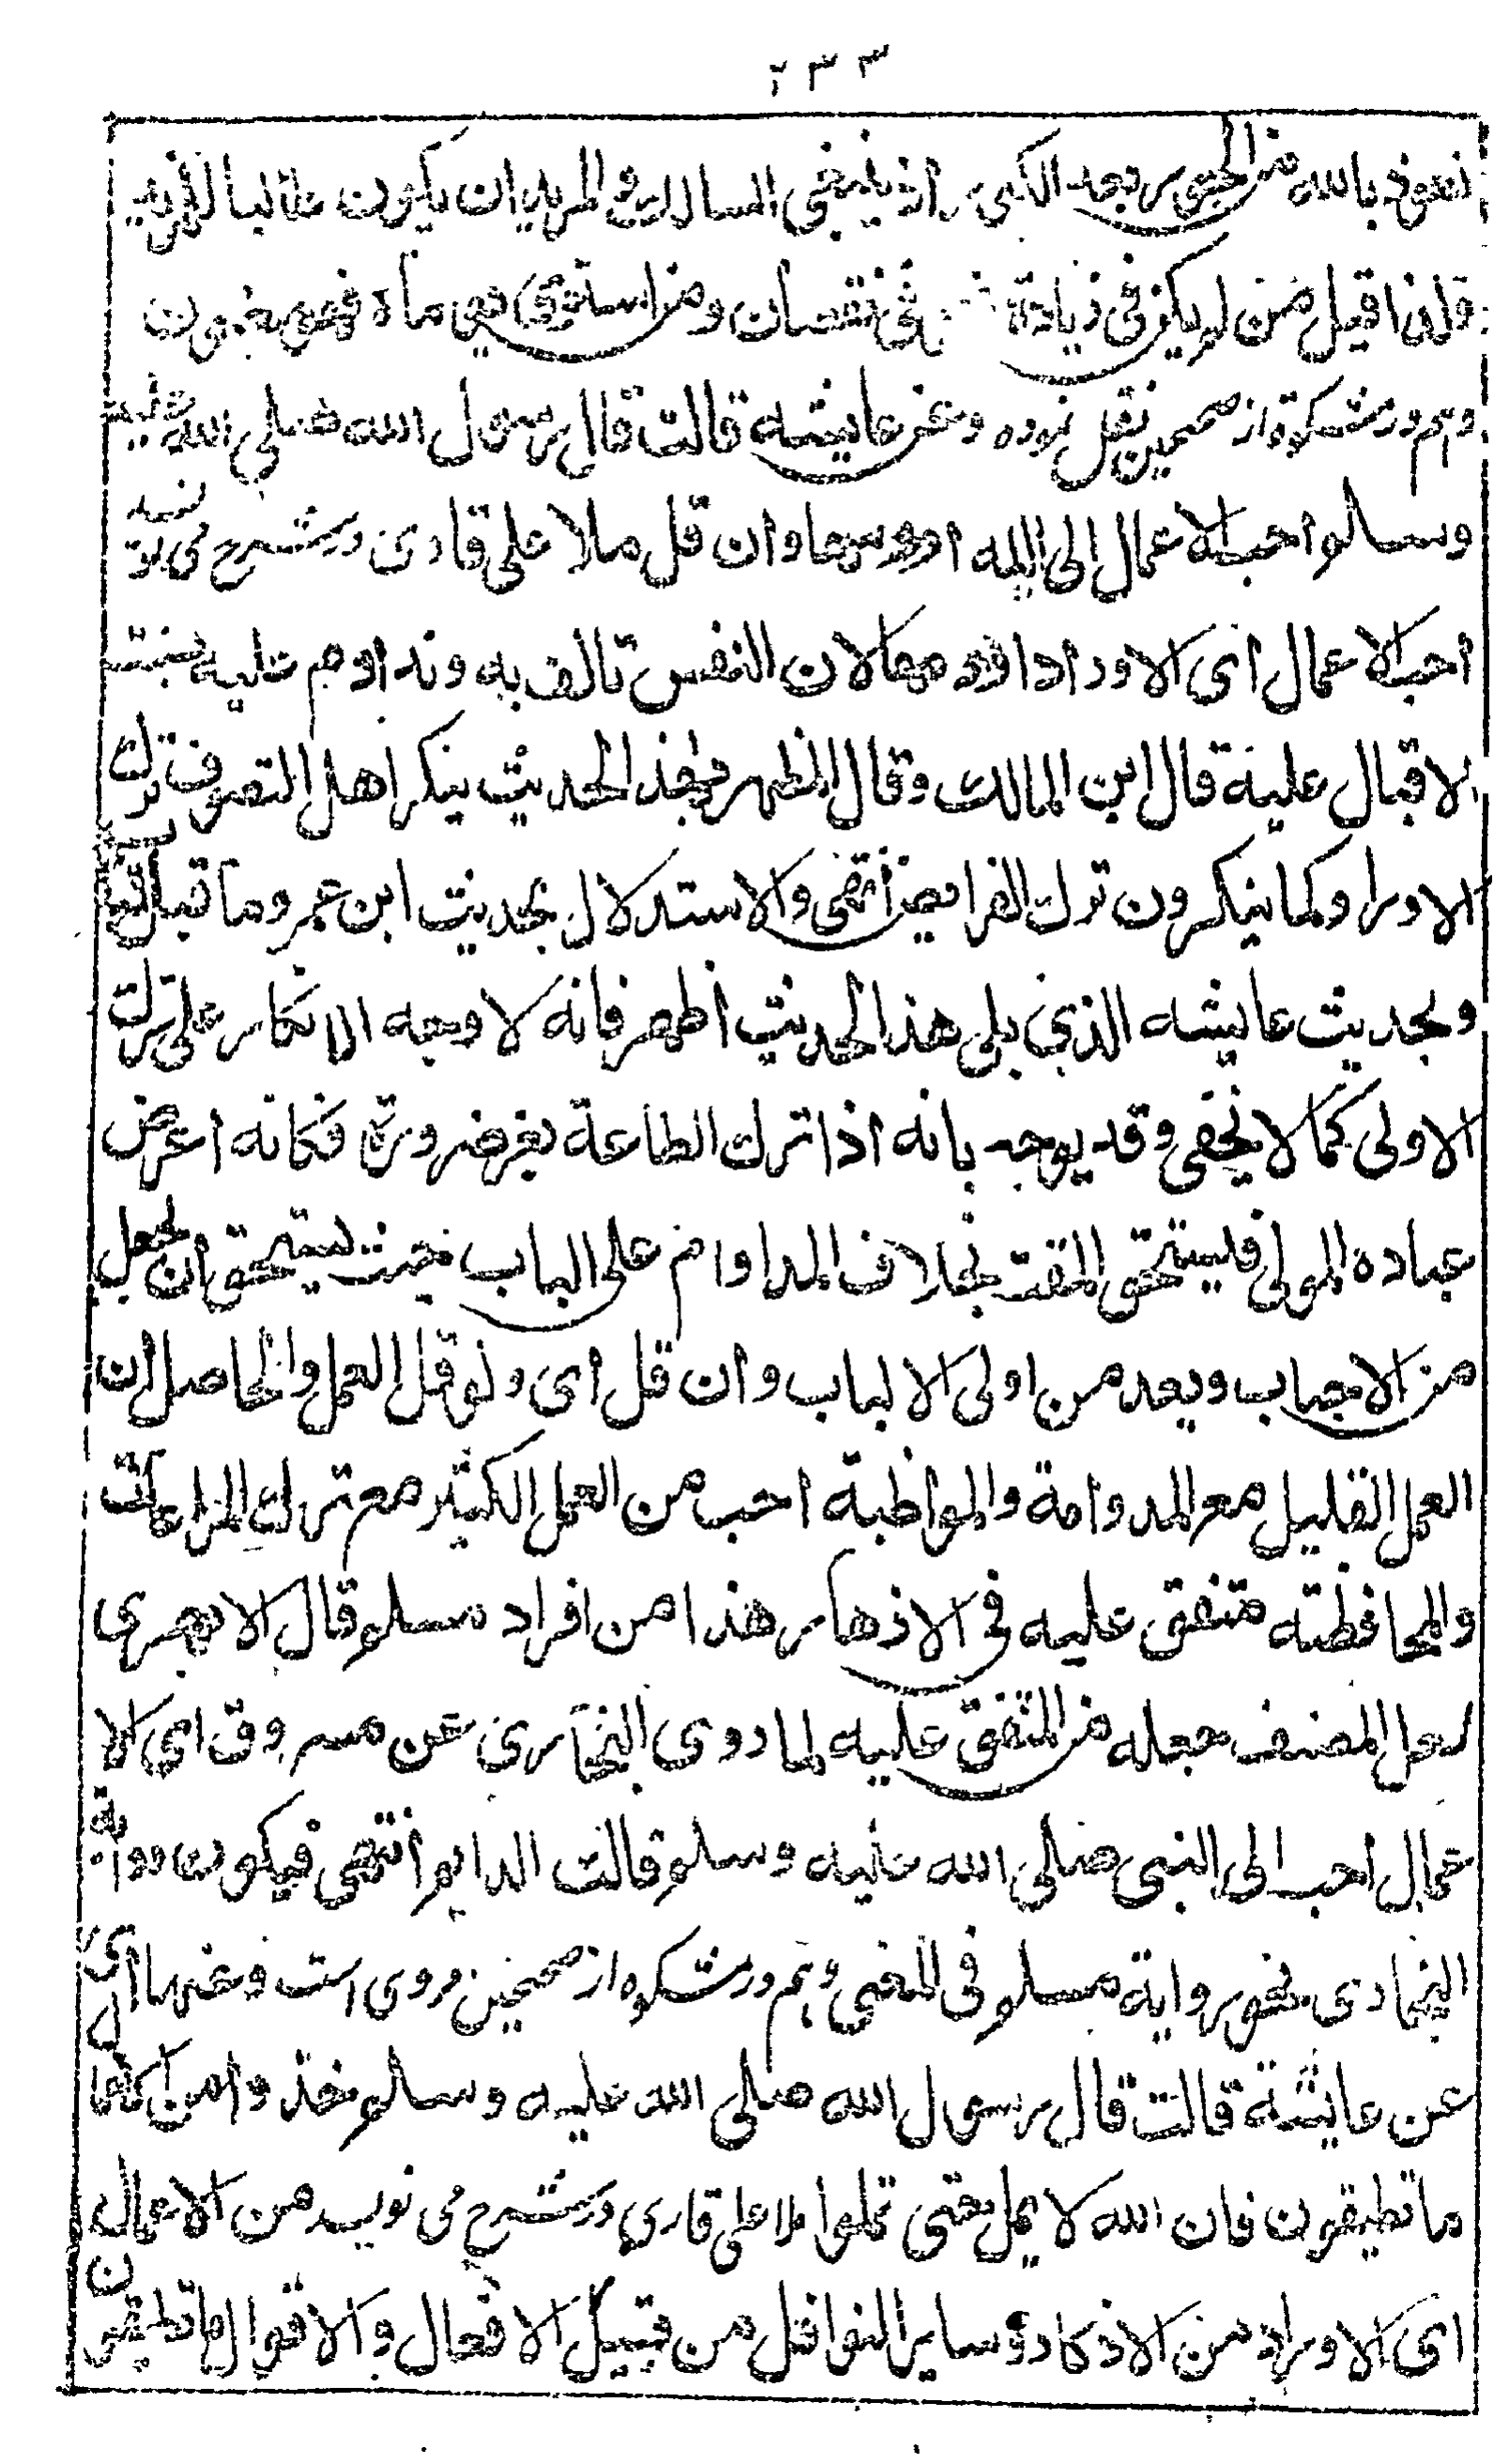 ۲۳۳
نعوذ بالله من الحور بعد الكور اذ ينبغي السالك والمريد ان يكون طالبا للمزيد
قلذا قيل من لم يكن في زيادة في نقصان ومن استوى يوماه فهو مغبون
وہم در مشکوۃ از صحیحین نقل نموده وعن عايشه قالت قال رسول الله صلى الله عليه
وسلم احب الاعمال الى الله ادومها وان قل ملا على قاری در شرح می نویسد
احب الاعمال ای الاوراد ادومها لان النفس تالف به وتداوم عليه بسبب
لاقبال علية قال ابن المالك وقال المظهر ولهذا الحديث ينكر اهل التصوف ترك
الاوراد كما ينكرون ترك الفرايض انتهى والاستدلال بحديث ابن عمر وما قبل
وبحديث عايشه الذي يلى هذا الحديث اظهر فانه لا وجه الانكار على ترك
الاولى كما لا يخفى وقد يوجه بانه اذا ترك الطاعة بغير ضرورة فكانه اعرض
عباده المولى فليستحق المقت بخلاف المداوام على الباب بحيث يستحق ان يجعل
من الاحباب ويعد من اولى الالباب وان قل اى ولو قل العمل والحاصل ان
العمل القليل مع المدوامة والمواظبة احب من العمل الكثير مع ترك المراعات
والمحافظته متفق عليه في الاذهار هذا من افراد مسلم قال الابهرى
لعل المصنف جعله من المتفق عليه لما روى البخارى عن مسروق اى الا
عمال احب الى النبى صلى الله عليه وسلم قالت الدايم انتهى فيكون رواية
البخارى نحو رواية مسلم فى المعنى وہم در مشکوه از صحیحین مروی است وعنها اى
عن عايشة قالت قال رسول الله صلى الله عليه وسلم خذوا من الاعمال
ما تطيقون فان الله لا يمل حتى تملوا ملا على قارى در شرح می نویسد من الاعمال
اى الاوراد من الاذكار وساير النوافل من قبيل الافعال والاقوال ما تطيقون